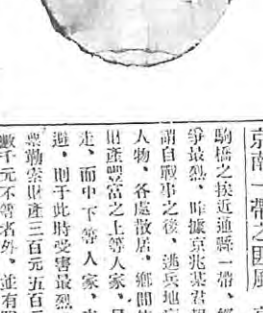 京南一帶之匪風
駒橋之挨近通縣一帶、
爭最烈、昨據京兆某君
謂自戰事之後、逃兵地
人物、各處散居、鄉間
財產豐富之上等人家、
走、而中下等人家、
避、則于此時受害最烈
票勒索財產三百元五百元
數千元不等者外、並有